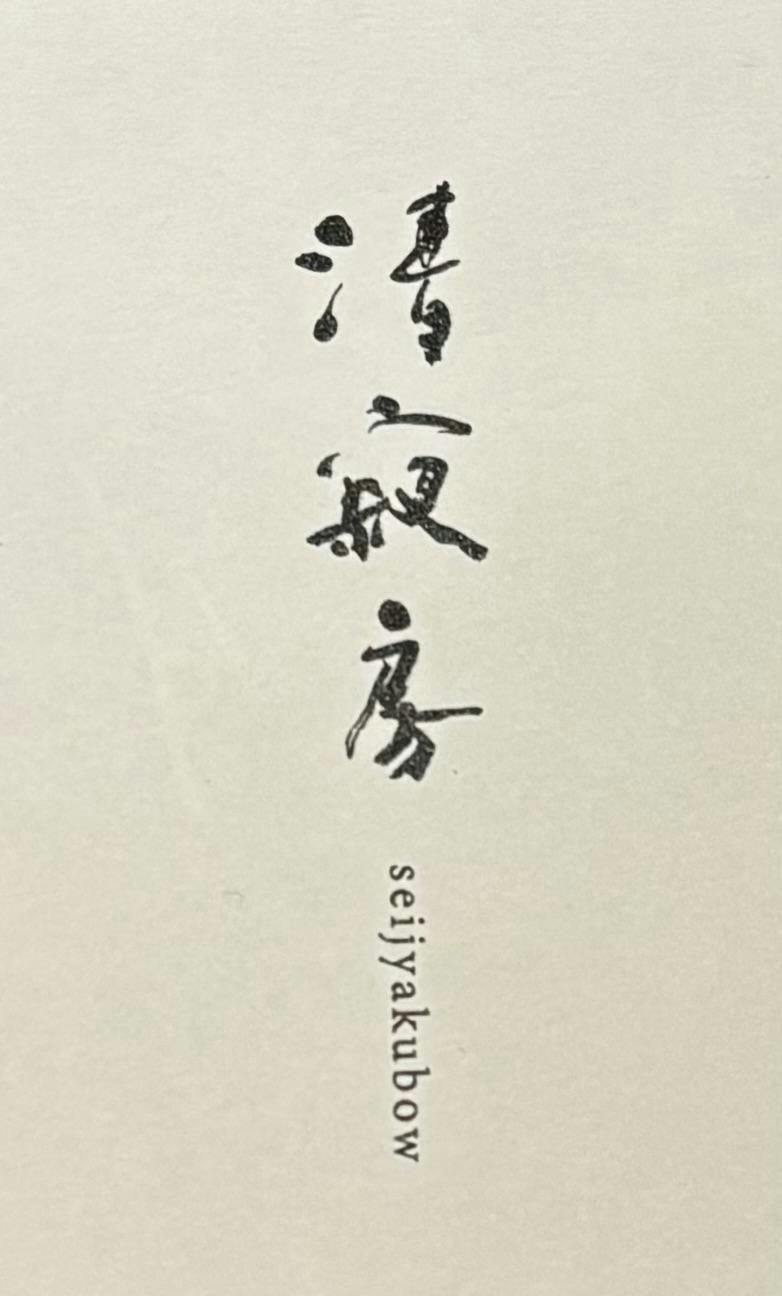 清寂房
seijyakubow